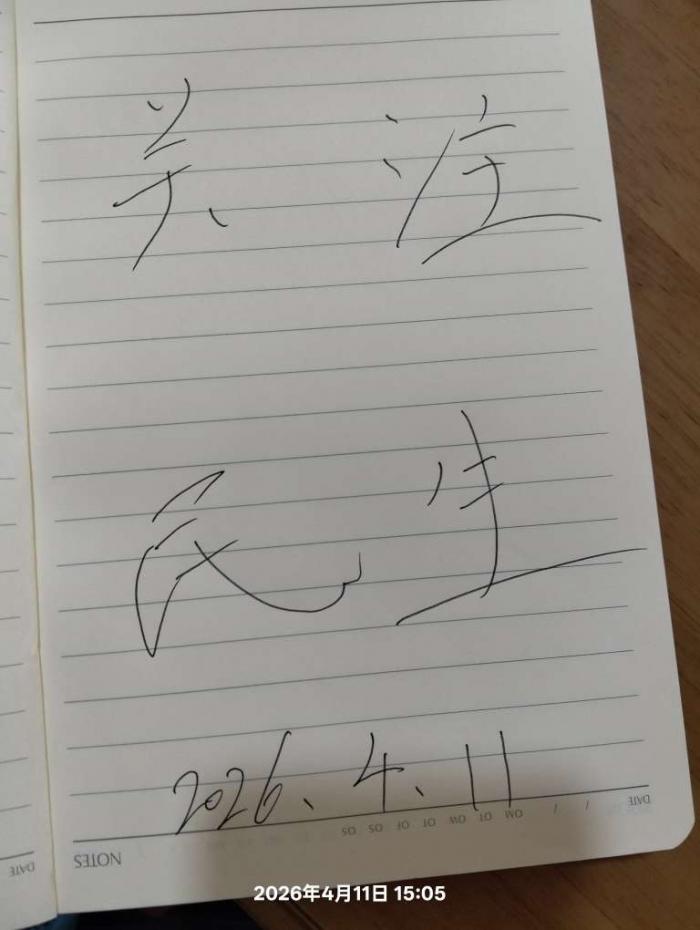 关注
民生
2026、4、11
NOTES
DATE
DATE
2026年4月11日 15:05